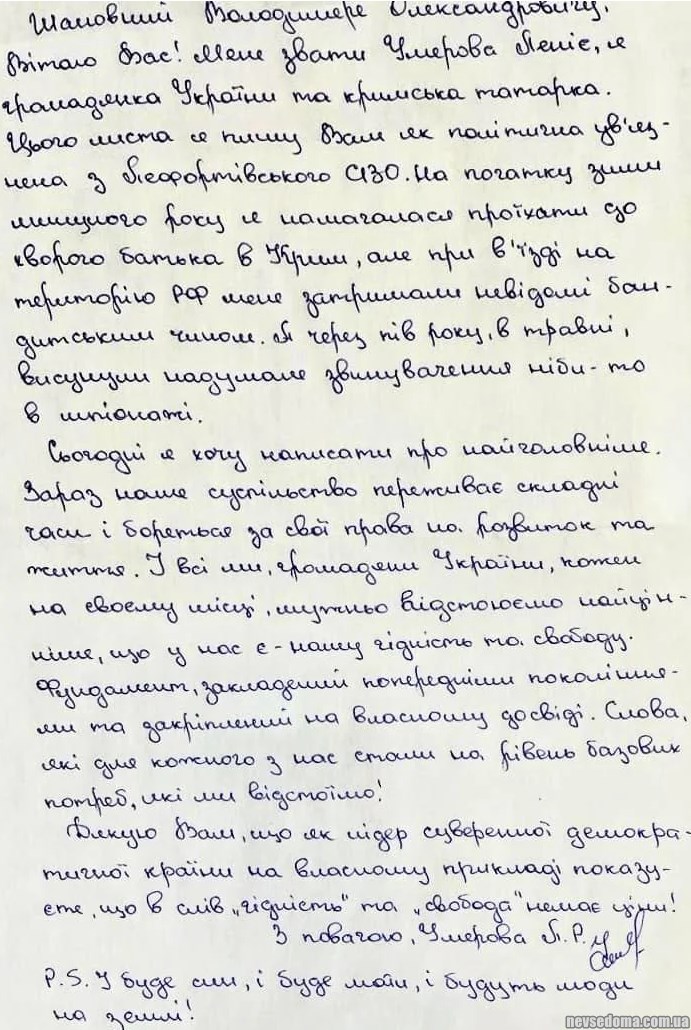 Шановний Володимире Олександровичу,
Вітаю Вас! Мене звати Умерова Леніє, я
громадянка України та кримська татарка.
Цього листа я пишу Вам як політична ув'яз-
нена з Лефортівського СІЗО. На початку зими
минулого року я намагалася проїхати до
хворого батька в Крим, але при в'їзді на
територію РФ мене затримали невідомі бан-
дитським чином. А через пів року, в травні,
висунули надумане звинувачення ніби-то
в шпіонажі.
Сьогодні я хочу написати про найголовніше.
Зараз наше суспільство переживає складні
часи і бореться за свої права на розвиток та
життя. І всі ми, громадяни України, кожен
на своєму місці, мужньо відстоюємо найцін-
ніше, що у нас є - нашу гідність та свободу.
Фундамент, закладений попередніми покоління-
ми та закріплений на власному досвіді. Слова,
які для кожного з нас стали на рівень базових
потреб, які ми відстоїмо!
Дякую Вам, що як лідер суверенної демокра-
тичної країни на власному прикладі показу-
єте, що в слів „гідність" та „свобода" немає ціни!
З повагою, Умерова Л. Р.
P.S. І буде син, і буде мати, і будуть люди
на землі!
nevsedoma.com.ua